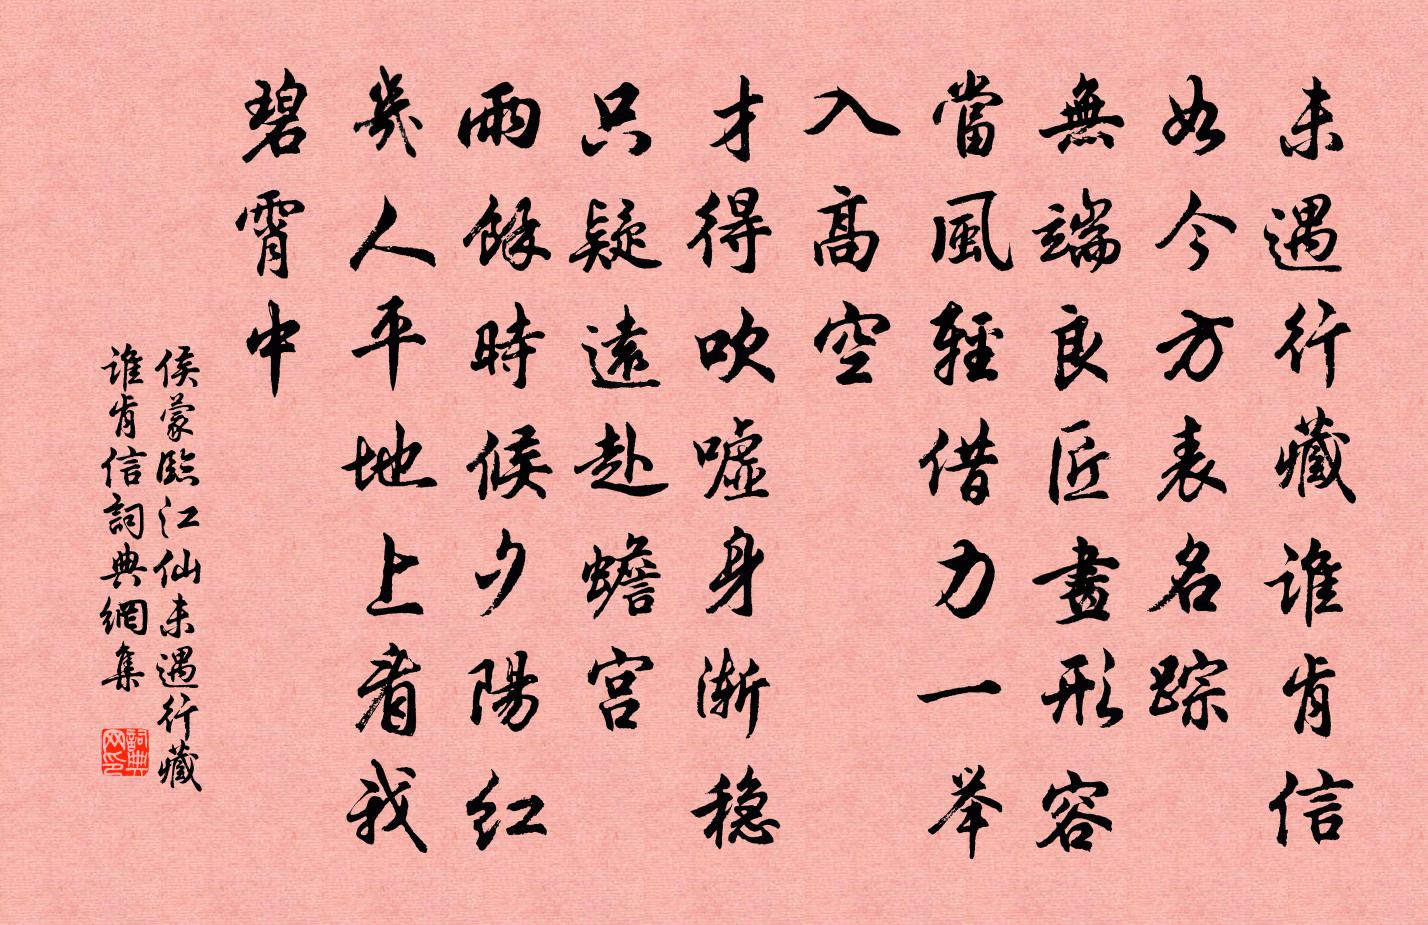 未遇行藏谁肯信
如今方表名踪
無端良匠畫形容
當風輕借力一举
入高空
才得吹嘘身渐稳
只疑遠赴蟾宫
雨餘時候夕陽红
幾人平地上看我
碧霄中
侯蒙臨江仙未遇行藏
谁肯信詞典網集
詞典网印